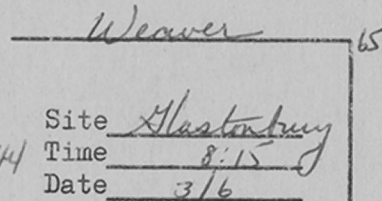 Weaver
65
Site Glastonbury
44 Time 8:15
Date 3/6